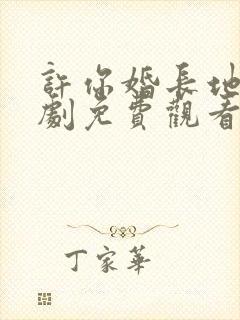 許你婚長地
劇免費觀看
丁家華